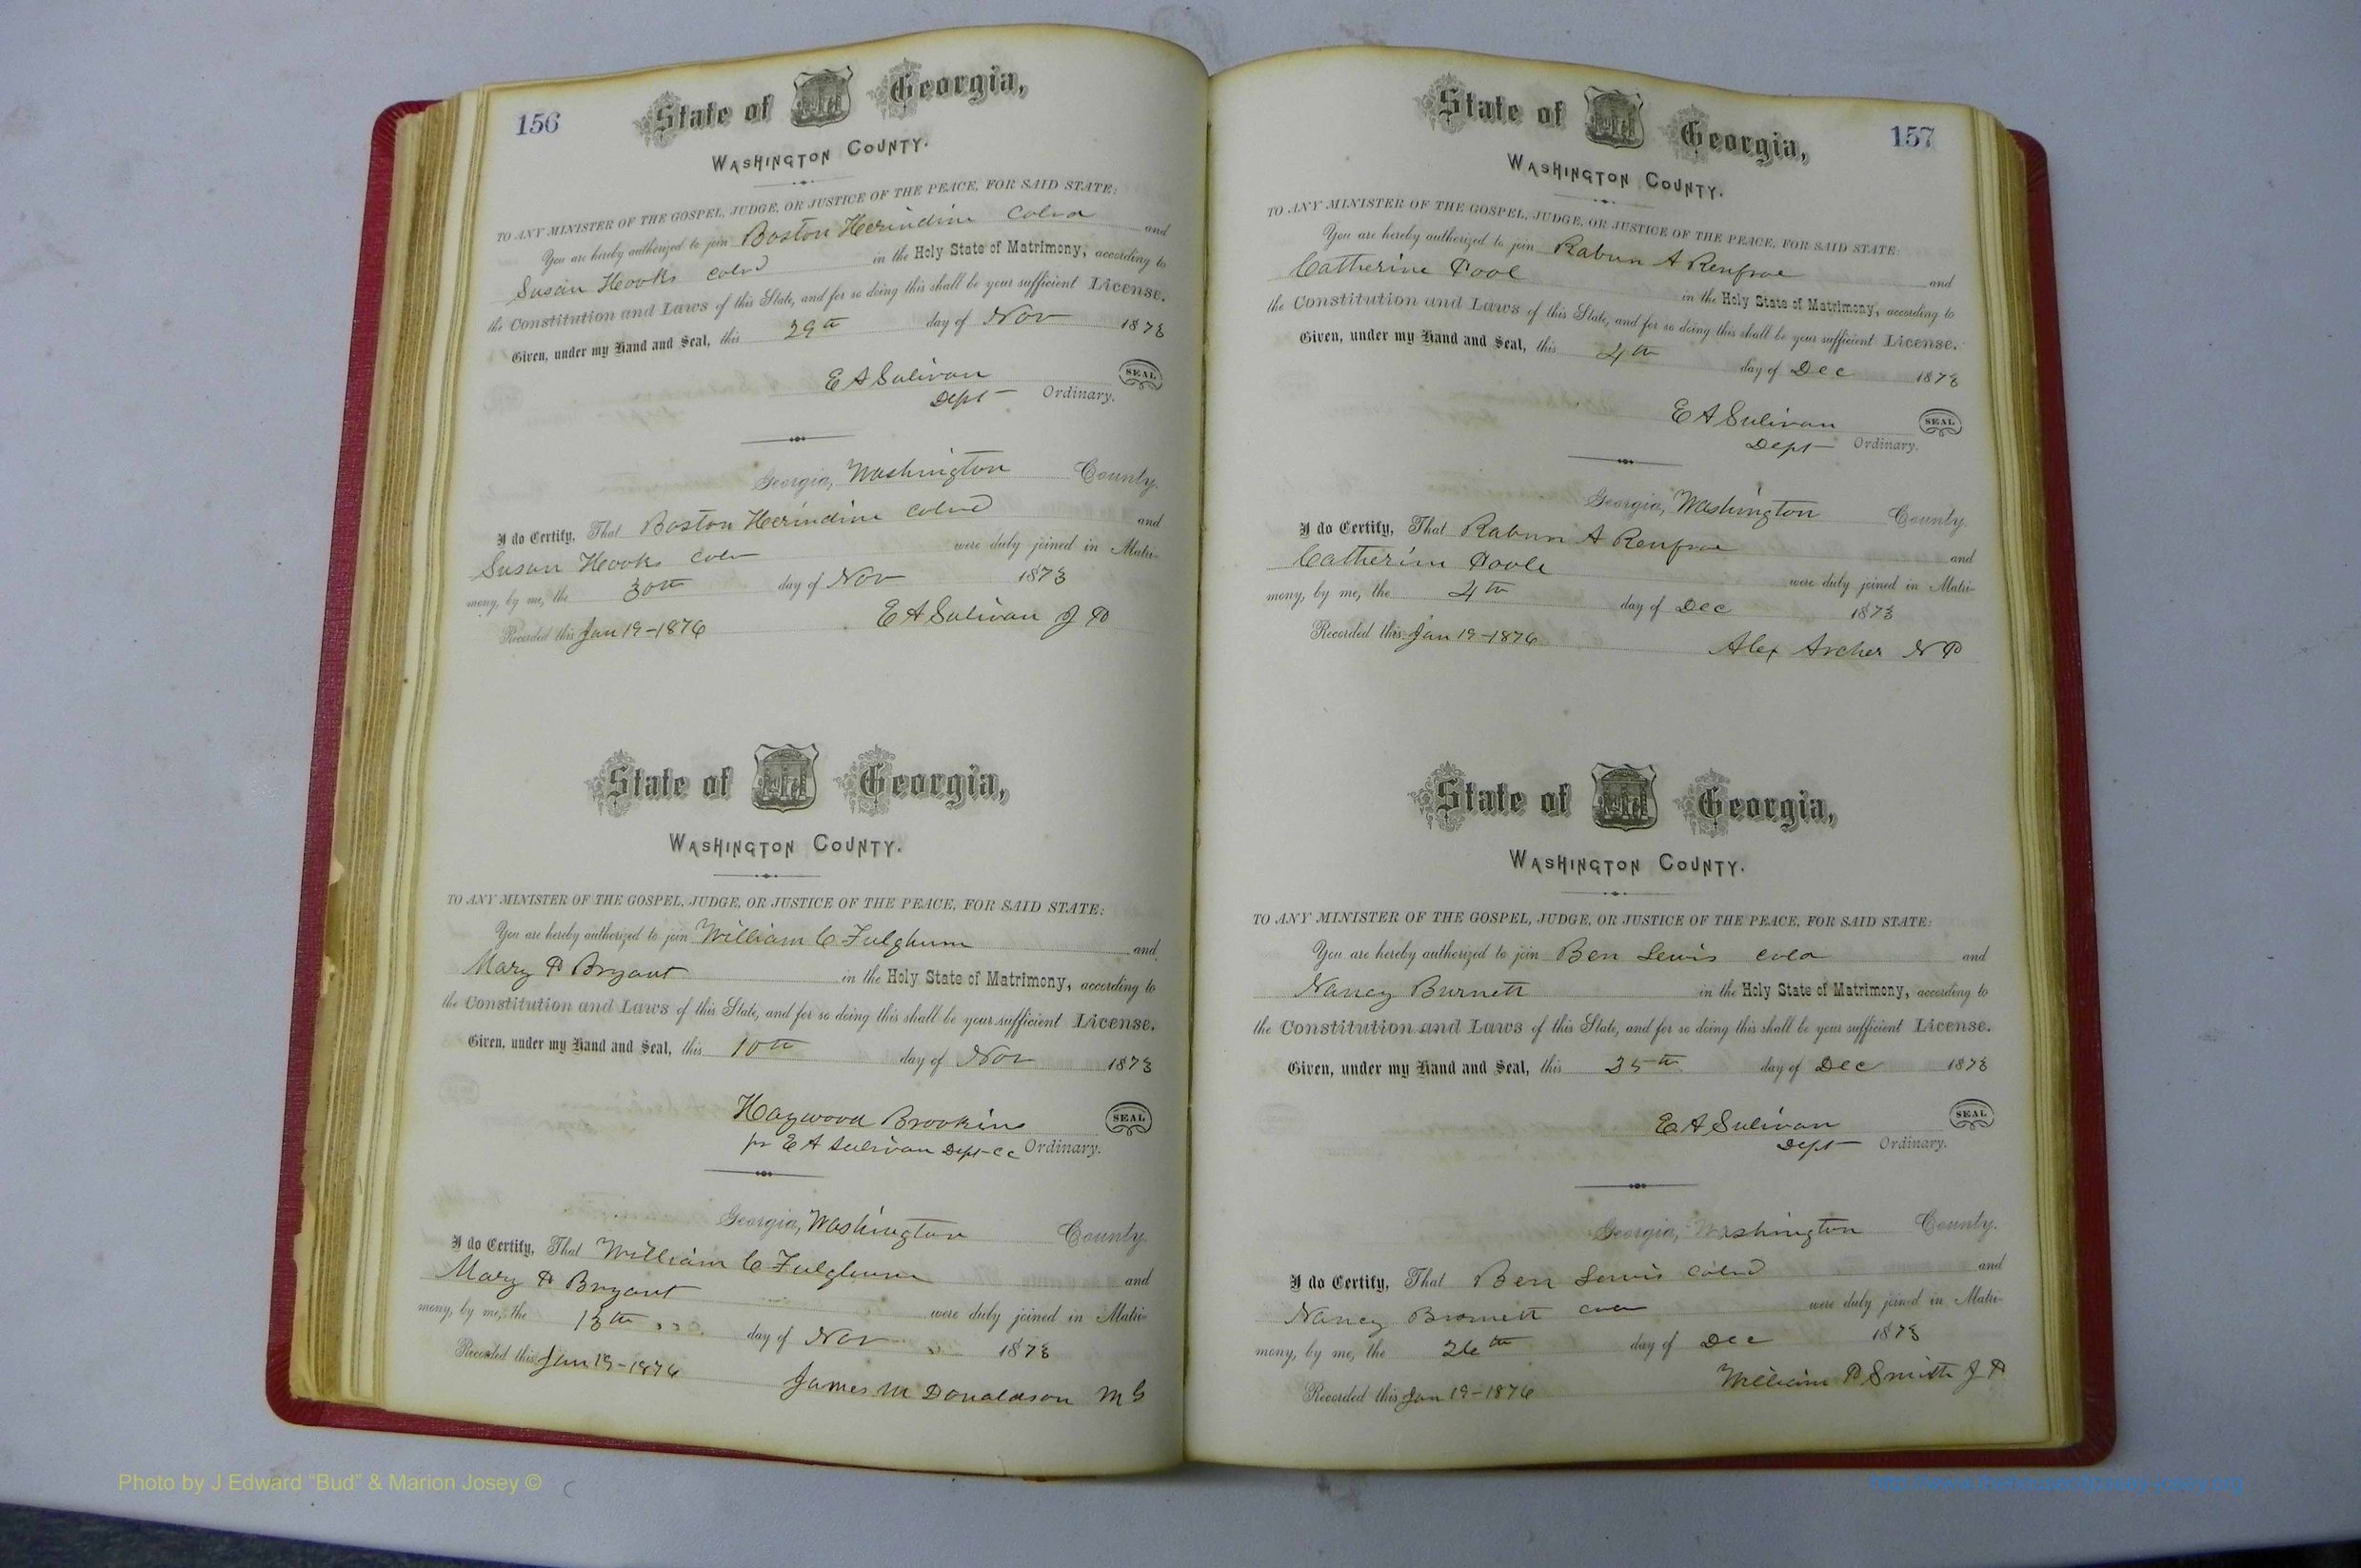 156
State of Georgia,
WASHINGTON COUNTY.
TO ANY MINISTER OF THE GOSPEL, JUDGE, OR JUSTICE OF THE PEACE, FOR SAID STATE:
You are hereby authorized to join Boston Herindine Cold and
Susan Hooks Cold in the Holy State of Matrimony, according to
the Constitution and Laws of this State, and for so doing this shall be your sufficient License.
Given, under my Hand and Seal, this 29th day of Nov 1873
E A Sulivan SEAL
Dept Ordinary.
Georgia, Washington County.
I do Certify, That Boston Herindine Colrd and
Susan Hooks Colr were duly joined in Matri-
mony, by me, the 30th day of Nov 1873
Recorded this Jan 19-1876 E A Sulivan J P
State of Georgia,
WASHINGTON COUNTY.
TO ANY MINISTER OF THE GOSPEL, JUDGE, OR JUSTICE OF THE PEACE, FOR SAID STATE:
You are hereby authorized to join William C Fulghum and
Mary P Bryant in the Holy State of Matrimony, according to
the Constitution and Laws of this State, and for so doing this shall be your sufficient License.
Given, under my Hand and Seal, this 10th day of Nov 1873
Haywood Brookins SEAL
pr E A Sulivan Dept CC Ordinary.
Georgia, Washington County.
I do Certify, That William C Fulghum and
Mary P Bryant were duly joined in Matri-
mony, by me, the 13th day of Nov 1873
Recorded this Jan 19-1876
James M Donaldson M G
157
State of Georgia,
WASHINGTON COUNTY.
TO ANY MINISTER OF THE GOSPEL, JUDGE, OR JUSTICE OF THE PEACE, FOR SAID STATE:
You are hereby authorized to join Rabun A Renfroe and
Catherine Pool in the Holy State of Matrimony, according to
the Constitution and Laws of this State, and for so doing this shall be your sufficient License.
Given, under my Hand and Seal, this 4th day of Dec 1873
E A Sulivan SEAL
Dept Ordinary.
Georgia, Washington County.
I do Certify, That Rabun A Renfroe and
Catherine Poole were duly joined in Matri-
mony, by me, the 4th day of Dec 1873
Recorded this Jan 19-1876 Alex Archer N P
State of Georgia,
WASHINGTON COUNTY.
TO ANY MINISTER OF THE GOSPEL, JUDGE, OR JUSTICE OF THE PEACE, FOR SAID STATE:
You are hereby authorized to join Ben Lewis Cold and
Nancy Burnett in the Holy State of Matrimony, according to
the Constitution and Laws of this State, and for so doing this shall be your sufficient License.
Given, under my Hand and Seal, this 25th day of Dec 1873
E A Sulivan SEAL
Dept Ordinary.
Georgia, Washington County.
I do Certify, That Ben Lewis Colrd and
Nancy were duly joined in Matri-
mony, by me, the 26th day of Dec 1873
William P Smith J P
Recorded this Jan 19-1876
Photo by J Edward “Bud” & Marion Josey ©